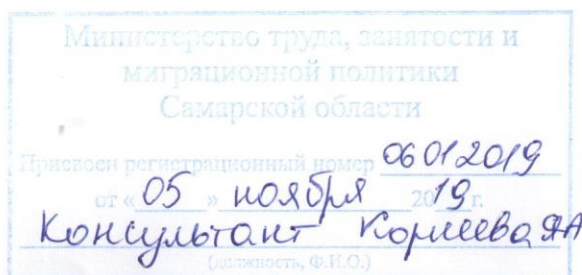 Министерство труда, занятости и
миграционной политики
Самарской области
Присвоен регистрационный номер 06012019
от « 05 » ноября 2019 г.
Консультант
(должность, Ф.И.О.)